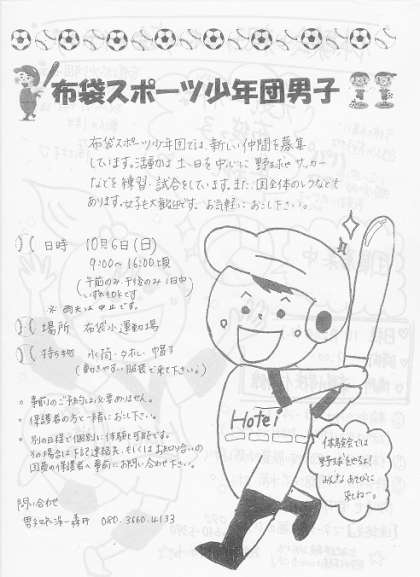 布袋スポーツ少年団男子
布袋スポーツ少年団では、新しい仲間を募集
しています。活動は土、日を中心に野球やサッカー
などを練習・試合をしています。また、団全体のレクなども
あります。女子も大歓迎です。お気軽にお こし下さい。
日時 10月6日(日)
9:00〜16:00頃
(午前のみ、午後のみ、1日中
いずれもOKです)
※ 雨天は中止です。
場所 布袋小運動場
持ち物 水筒・タオル・帽子
(動きやすい服装で来て下さい。)
事前のご予約は必要ありません。
保護者の方と一緒にお こし下さい。
別の日程で個別に体験も可能です。
その場合は下記連絡先、もしくはお知り合いの
団員の保護者へ事前にお問い合わせ下さい。
問い合わせ
080.3660.4133
Hotei
体験会では
野球をやるよ!
みんなあそびに
来てね〜。